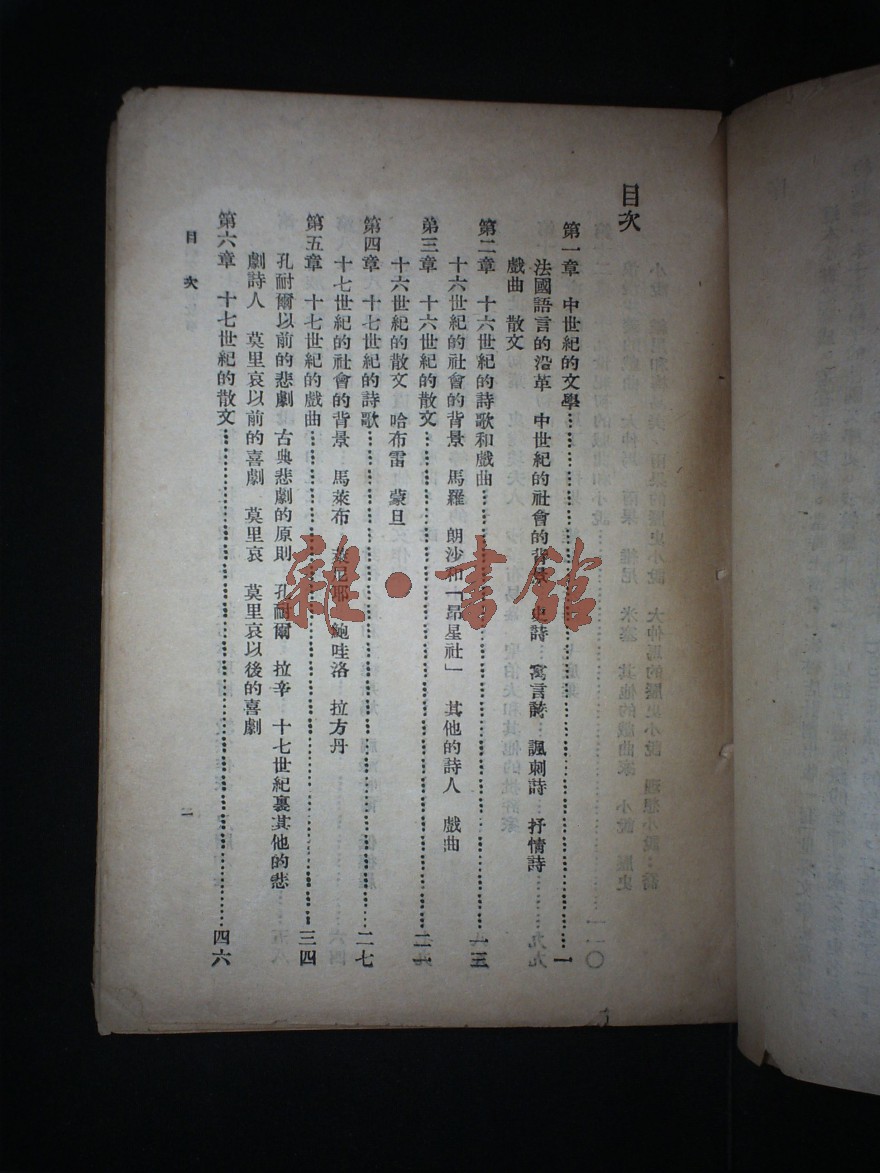 目次
第一章　中世紀的文學……一
法國語言的沿革　中世紀的社會的背景　史詩　寓言詩　諷刺詩　抒情詩
戲曲　散文
第二章　十六世紀的詩歌和戲曲……十三
十六世紀的社會的背景　馬羅　朗沙和「昂星社」　其他的詩人　戲曲
第三章　十六世紀的散文……二一
十六世紀的散文　哈布雷　蒙旦
第四章　十七世紀的詩歌……二七
十七世紀的社會的背景　馬萊布　尼耶　鮑哇洛　拉方丹
第五章　十七世紀的戲曲……三四
孔耐爾以前的悲劇　古典悲劇的原則　孔耐爾　拉辛　十七世紀裏其他的悲
劇詩人　莫里哀以前的喜劇　莫里哀　莫里哀以後的喜劇
第六章　十七世紀的散文……四六
目次
雜·書館